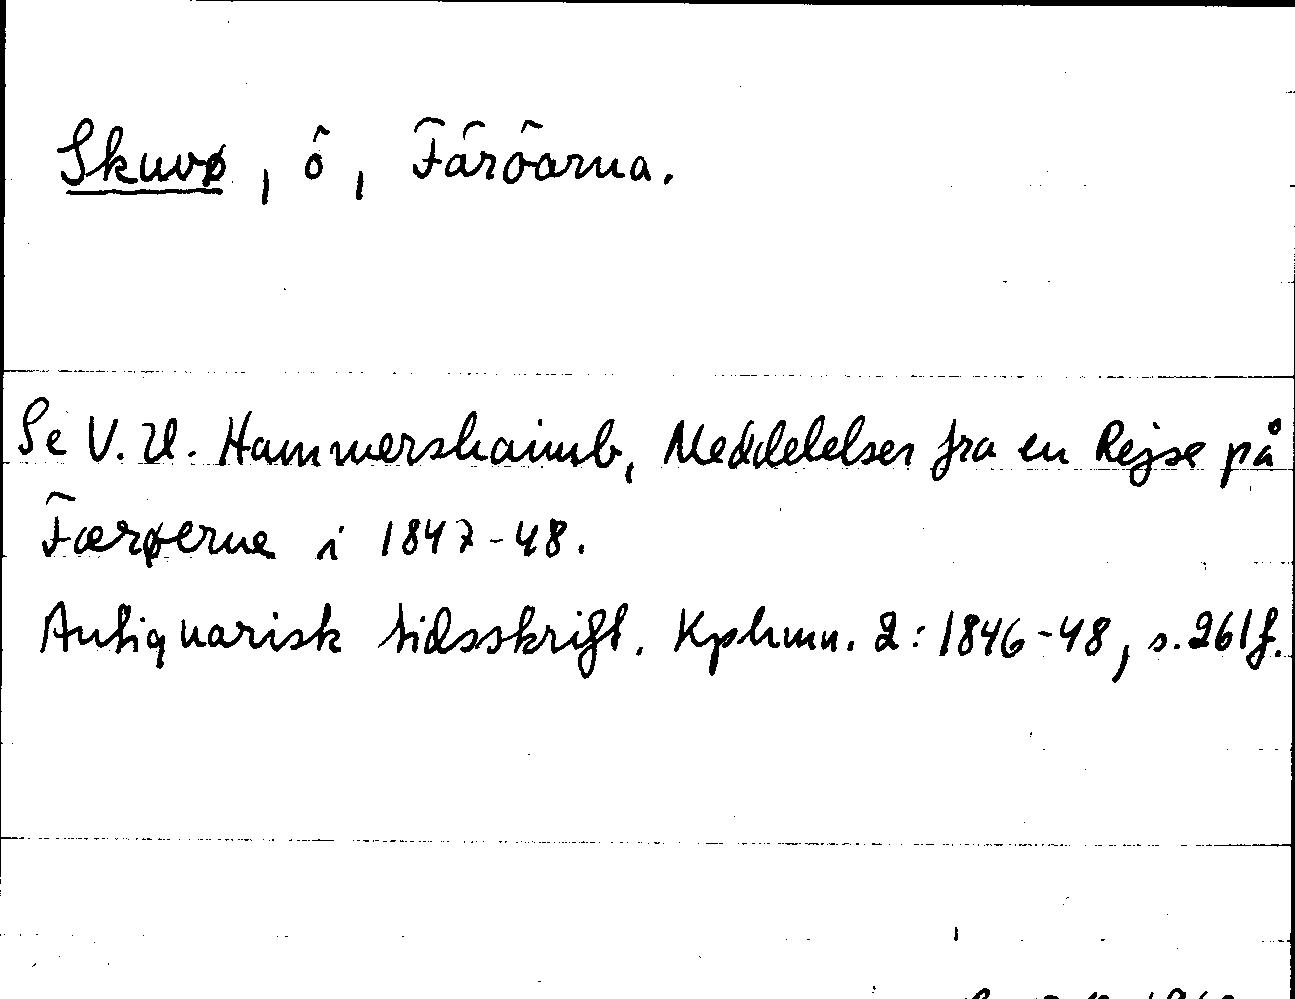 Skuvø, ö, Färöarna.
Se V. U. Hammershaimb, Meddelelser fra en Rejse på
Færøerne i 1847-48.
Antiquarisk tidsskrift. Kphmn. 2: 1846-48, s. 261f.